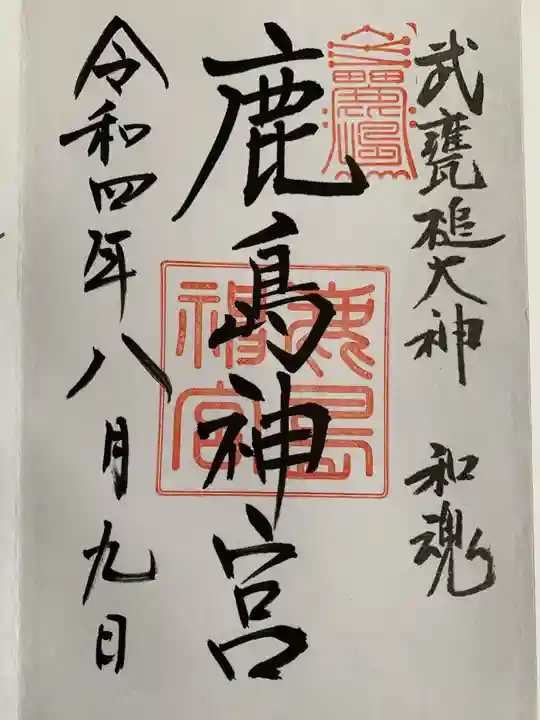 武甕槌大神 和魂
鹿島神宮
鹿島
神宮
令和四年八月九日